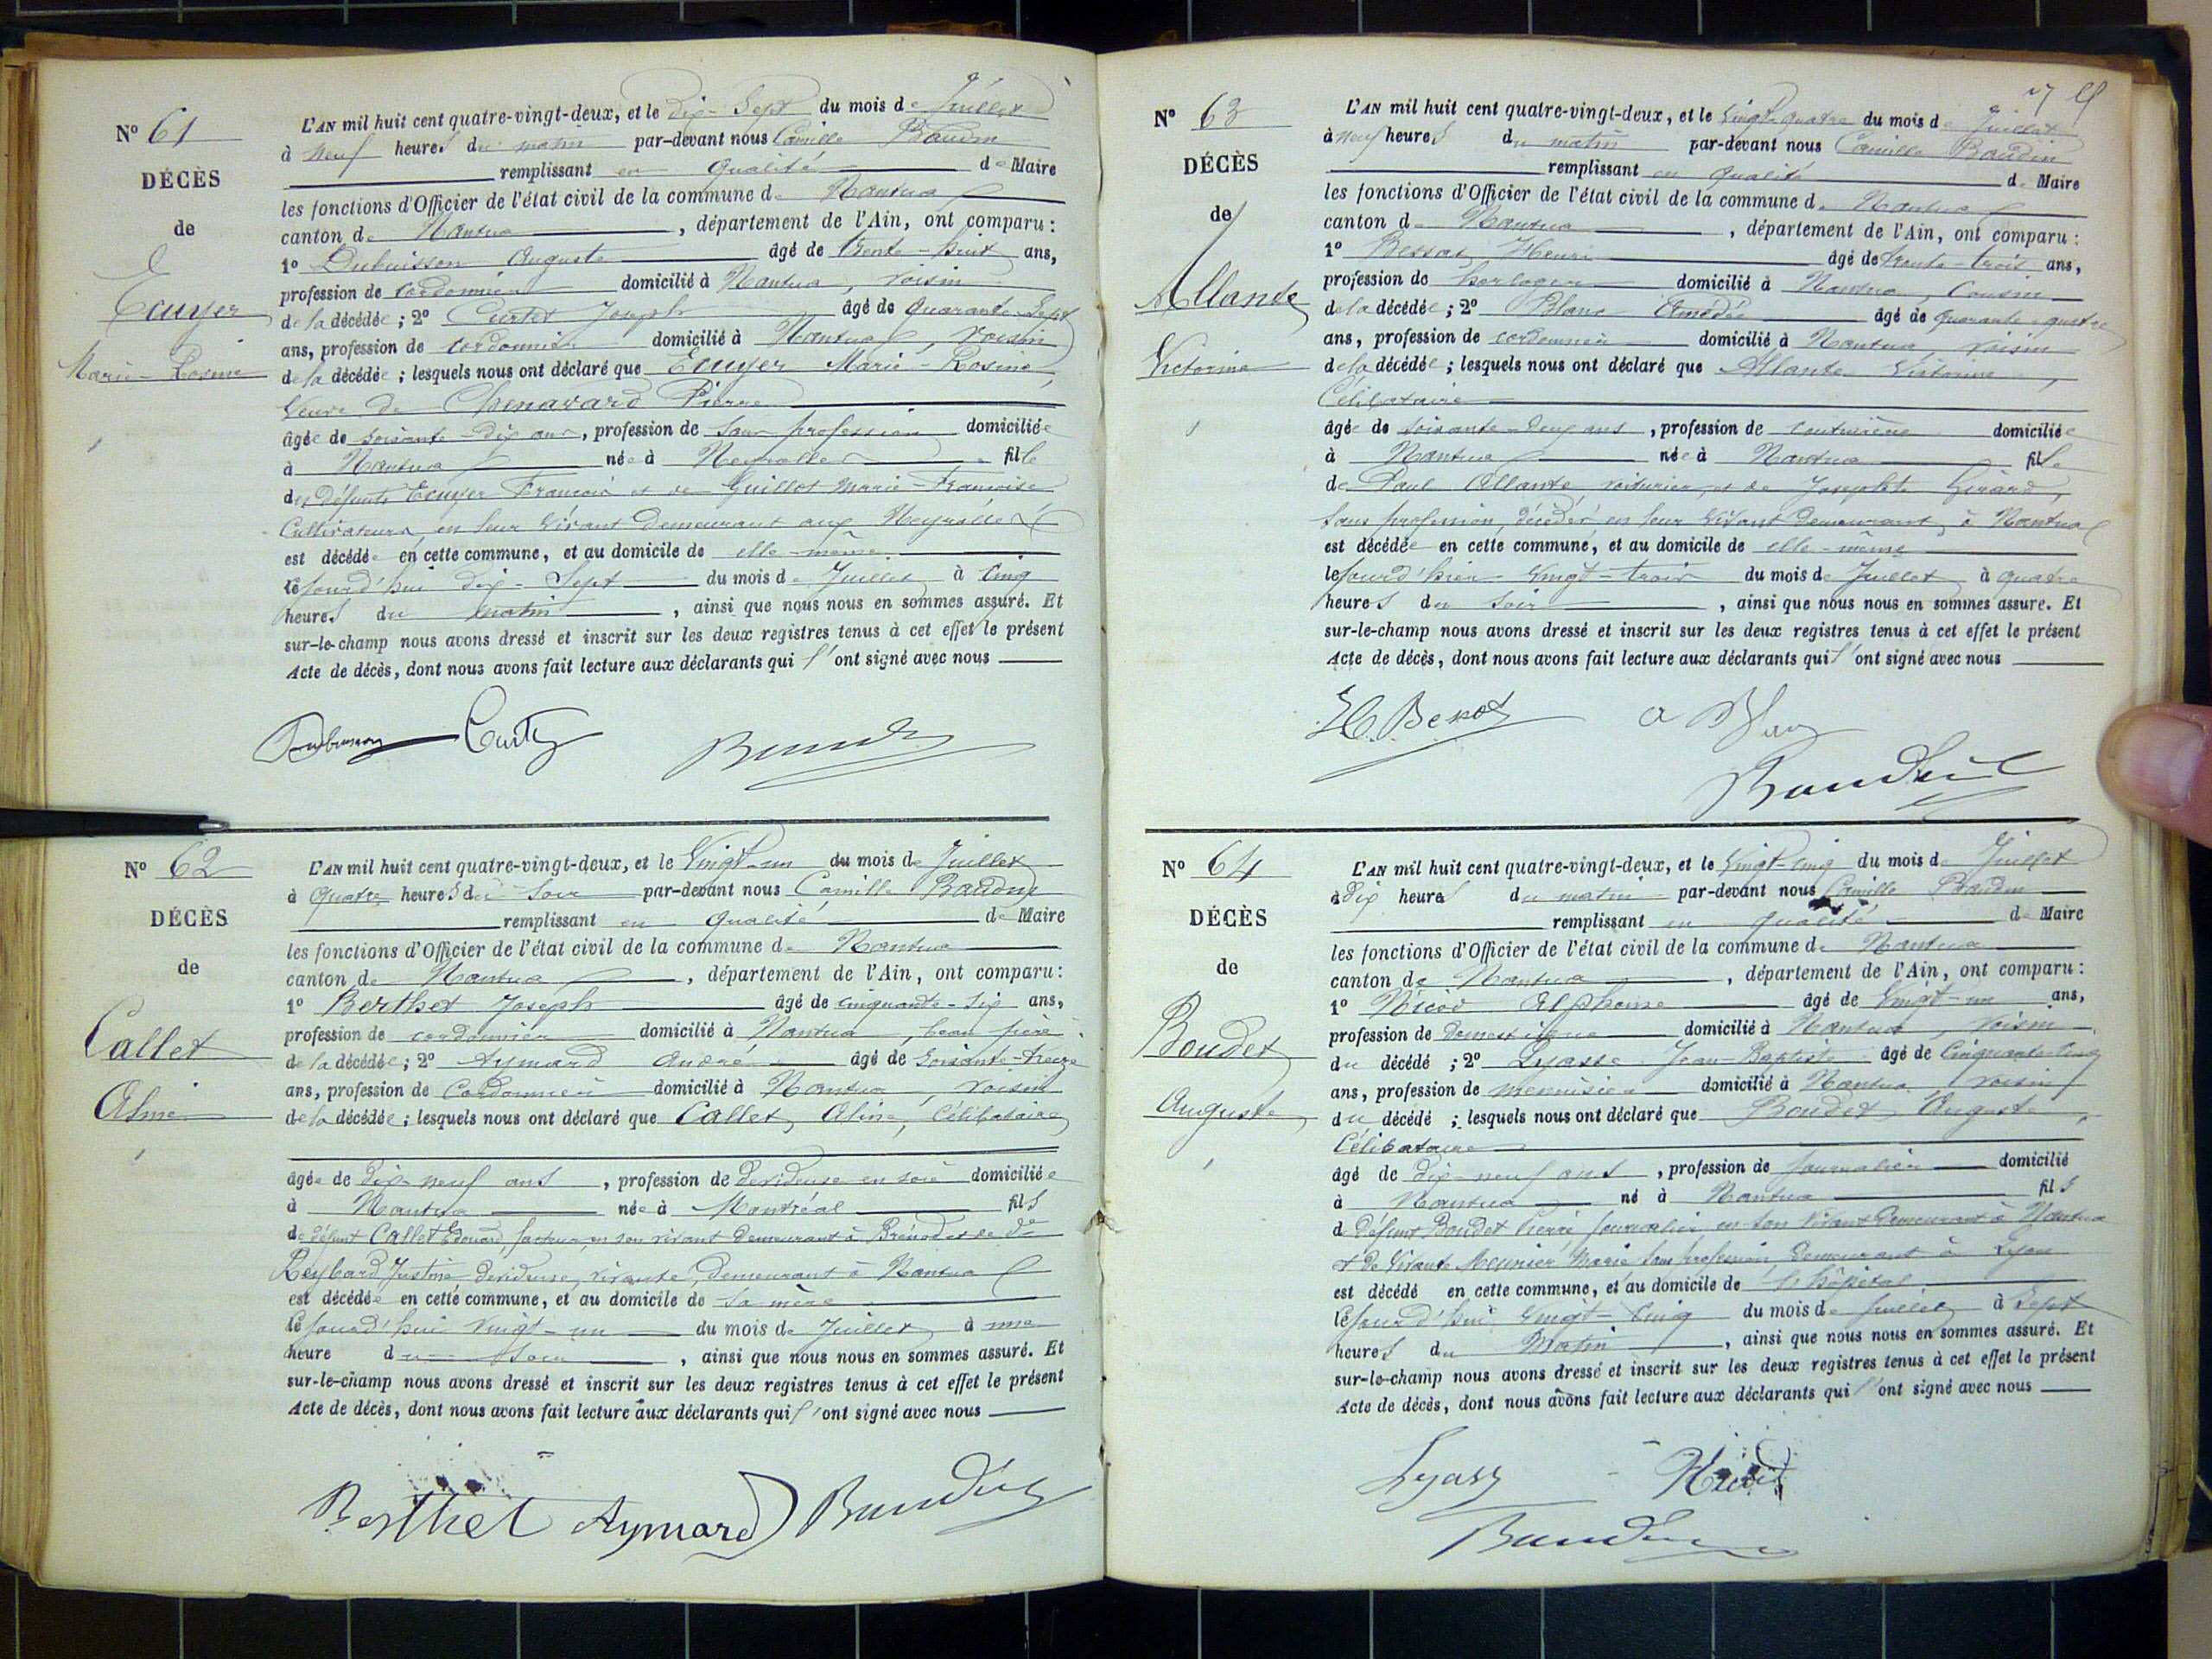 N° 61
DÉCÈS
de
Ecuyer
Marie-Rosine
L'AN mil huit cent quatre-vingt-deux, et le dix-Sept du mois de Juillet
à neuf heures du matin par-devant nous Camille Baudin
remplissant en qualité de Maire
les fonctions d'Officier de l'état civil de la commune de Nantua
canton de Nantua, département de l'Ain, ont comparu :
1° Dubuisson Auguste âgé de trente-huit ans,
profession de cordonnier domicilié à Nantua, voisin
de la décédée ; 2° Curtet Joseph âgé de quarante-Sept
ans, profession de cordonnier domicilié à Nantua, voisin
de la décédée ; lesquels nous ont déclaré que Ecuyer Marie-Rosine,
Veuve de Chenavard Pierre
âgée de soixante-dix ans, profession de Sans profession domiciliée
à Nantua née à Neyrolles fille
des défunts Ecuyer François et de Guillot Marie-Françoise
Cultivateurs, en leur vivant demeurant aux Neyrolles
est décédée en cette commune, et au domicile de elle-même
le jourd'hui dix-Sept du mois de Juillet à Cinq
heures du matin, ainsi que nous nous en sommes assuré. Et
sur-le-champ nous avons dressé et inscrit sur les deux registres tenus à cet effet le présent
Acte de décès, dont nous avons fait lecture aux déclarants qui l'ont signé avec nous
Baudin
N° 62
DÉCÈS
de
Callet
Aline
L'AN mil huit cent quatre-vingt-deux, et le Vingt-un du mois de Juillet
à Quatre heures du Soir par-devant nous Camille Baudin
remplissant en qualité de Maire
les fonctions d'Officier de l'état civil de la commune de Nantua
canton de Nantua, département de l'Ain, ont comparu :
1° Berthet Joseph âgé de cinquante-six ans,
profession de cordonnier domicilié à Nantua, beau frère
de la décédée ; 2° Aymard André âgé de Soixante-treize
ans, profession de Cordonnier domicilié à Nantua, voisin
de la décédée ; lesquels nous ont déclaré que Callet, Aline, Célibataire
âgée de dix-neuf ans, profession de devideuse en soie domiciliée
à Nantua née à Montréal fils
de défunt Callet Edouard, facteur, en son vivant demeurant à Brénod et de de
Reybard Justine devideuse, vivante, demeurant à Nantua
est décédée en cette commune, et au domicile de sa mère
le jourd'hui vingt-un du mois de Juillet à une
heure du Soir, ainsi que nous nous en sommes assuré. Et
sur-le-champ nous avons dressé et inscrit sur les deux registres tenus à cet effet le présent
Acte de décès, dont nous avons fait lecture aux déclarants qui l'ont signé avec nous
Berthet Aymard Baudin
N° 63
DÉCÈS
de
Allante
Victorine
L'AN mil huit cent quatre-vingt-deux, et le Vingt-quatre du mois de Juillet
à neuf heures du matin par-devant nous Camille Baudin
remplissant en qualité de Maire
les fonctions d'Officier de l'état civil de la commune de Nantua
canton de Nantua, département de l'Ain, ont comparu :
1° Henri âgé de trente-trois ans,
profession de horloger domicilié à Nantua, Cousin
de la décédée ; 2° Blanc Amédée âgé de quarante-quatre
ans, profession de cordonnier domicilié à Nantua voisin
de la décédée ; lesquels nous ont déclaré que Allante Victorine,
Célibataire
âgée de soixante-deux ans, profession de couturière domiciliée
à Nantua née à Nantua fille
de Paul Allante, voiturier, et de Josephte Girard,
Sans profession, décédés en leur vivant demeurant à Nantua
est décédée en cette commune, et au domicile de elle-même
le jourd'hier Vingt-trois du mois de Juillet à quatre
heures du Soir, ainsi que nous nous en sommes assuré. Et
sur-le-champ nous avons dressé et inscrit sur les deux registres tenus à cet effet le présent
Acte de décès, dont nous avons fait lecture aux déclarants qui l'ont signé avec nous
Baudin
N° 64
DÉCÈS
de
Boudet
Auguste
L'AN mil huit cent quatre-vingt-deux, et le Vingt-cinq du mois de Juillet
à dix heures du matin par-devant nous Camille Baudin
remplissant en qualité de Maire
les fonctions d'Officier de l'état civil de la commune de Nantua
canton de Nantua, département de l'Ain, ont comparu :
1° Nicod Alphonse âgé de Vingt-un ans,
profession de Domestique domicilié à Nantua, voisin
du décédé ; 2° Lyasse Jean-Baptiste âgé de Cinquante-cinq
ans, profession de menuisier domicilié à Nantua voisin
du décédé ; lesquels nous ont déclaré que Boudet Auguste,
Célibataire
âgé de dix-neuf ans, profession de Journalier domicilié
à Nantua né à Nantua fils
de défunt Boudet Pierre, journalier en son vivant demeurant à Nantua
et de vivante Meunier Marie Sans profession, demeurant à Lyon
est décédé en cette commune, et au domicile de l'hôpital
le jourd'hui Vingt-cinq du mois de Juillet à Sept
heures du Matin, ainsi que nous nous en sommes assuré. Et
sur-le-champ nous avons dressé et inscrit sur les deux registres tenus à cet effet le présent
Acte de décès, dont nous avons fait lecture aux déclarants qui l'ont signé avec nous
Baudin